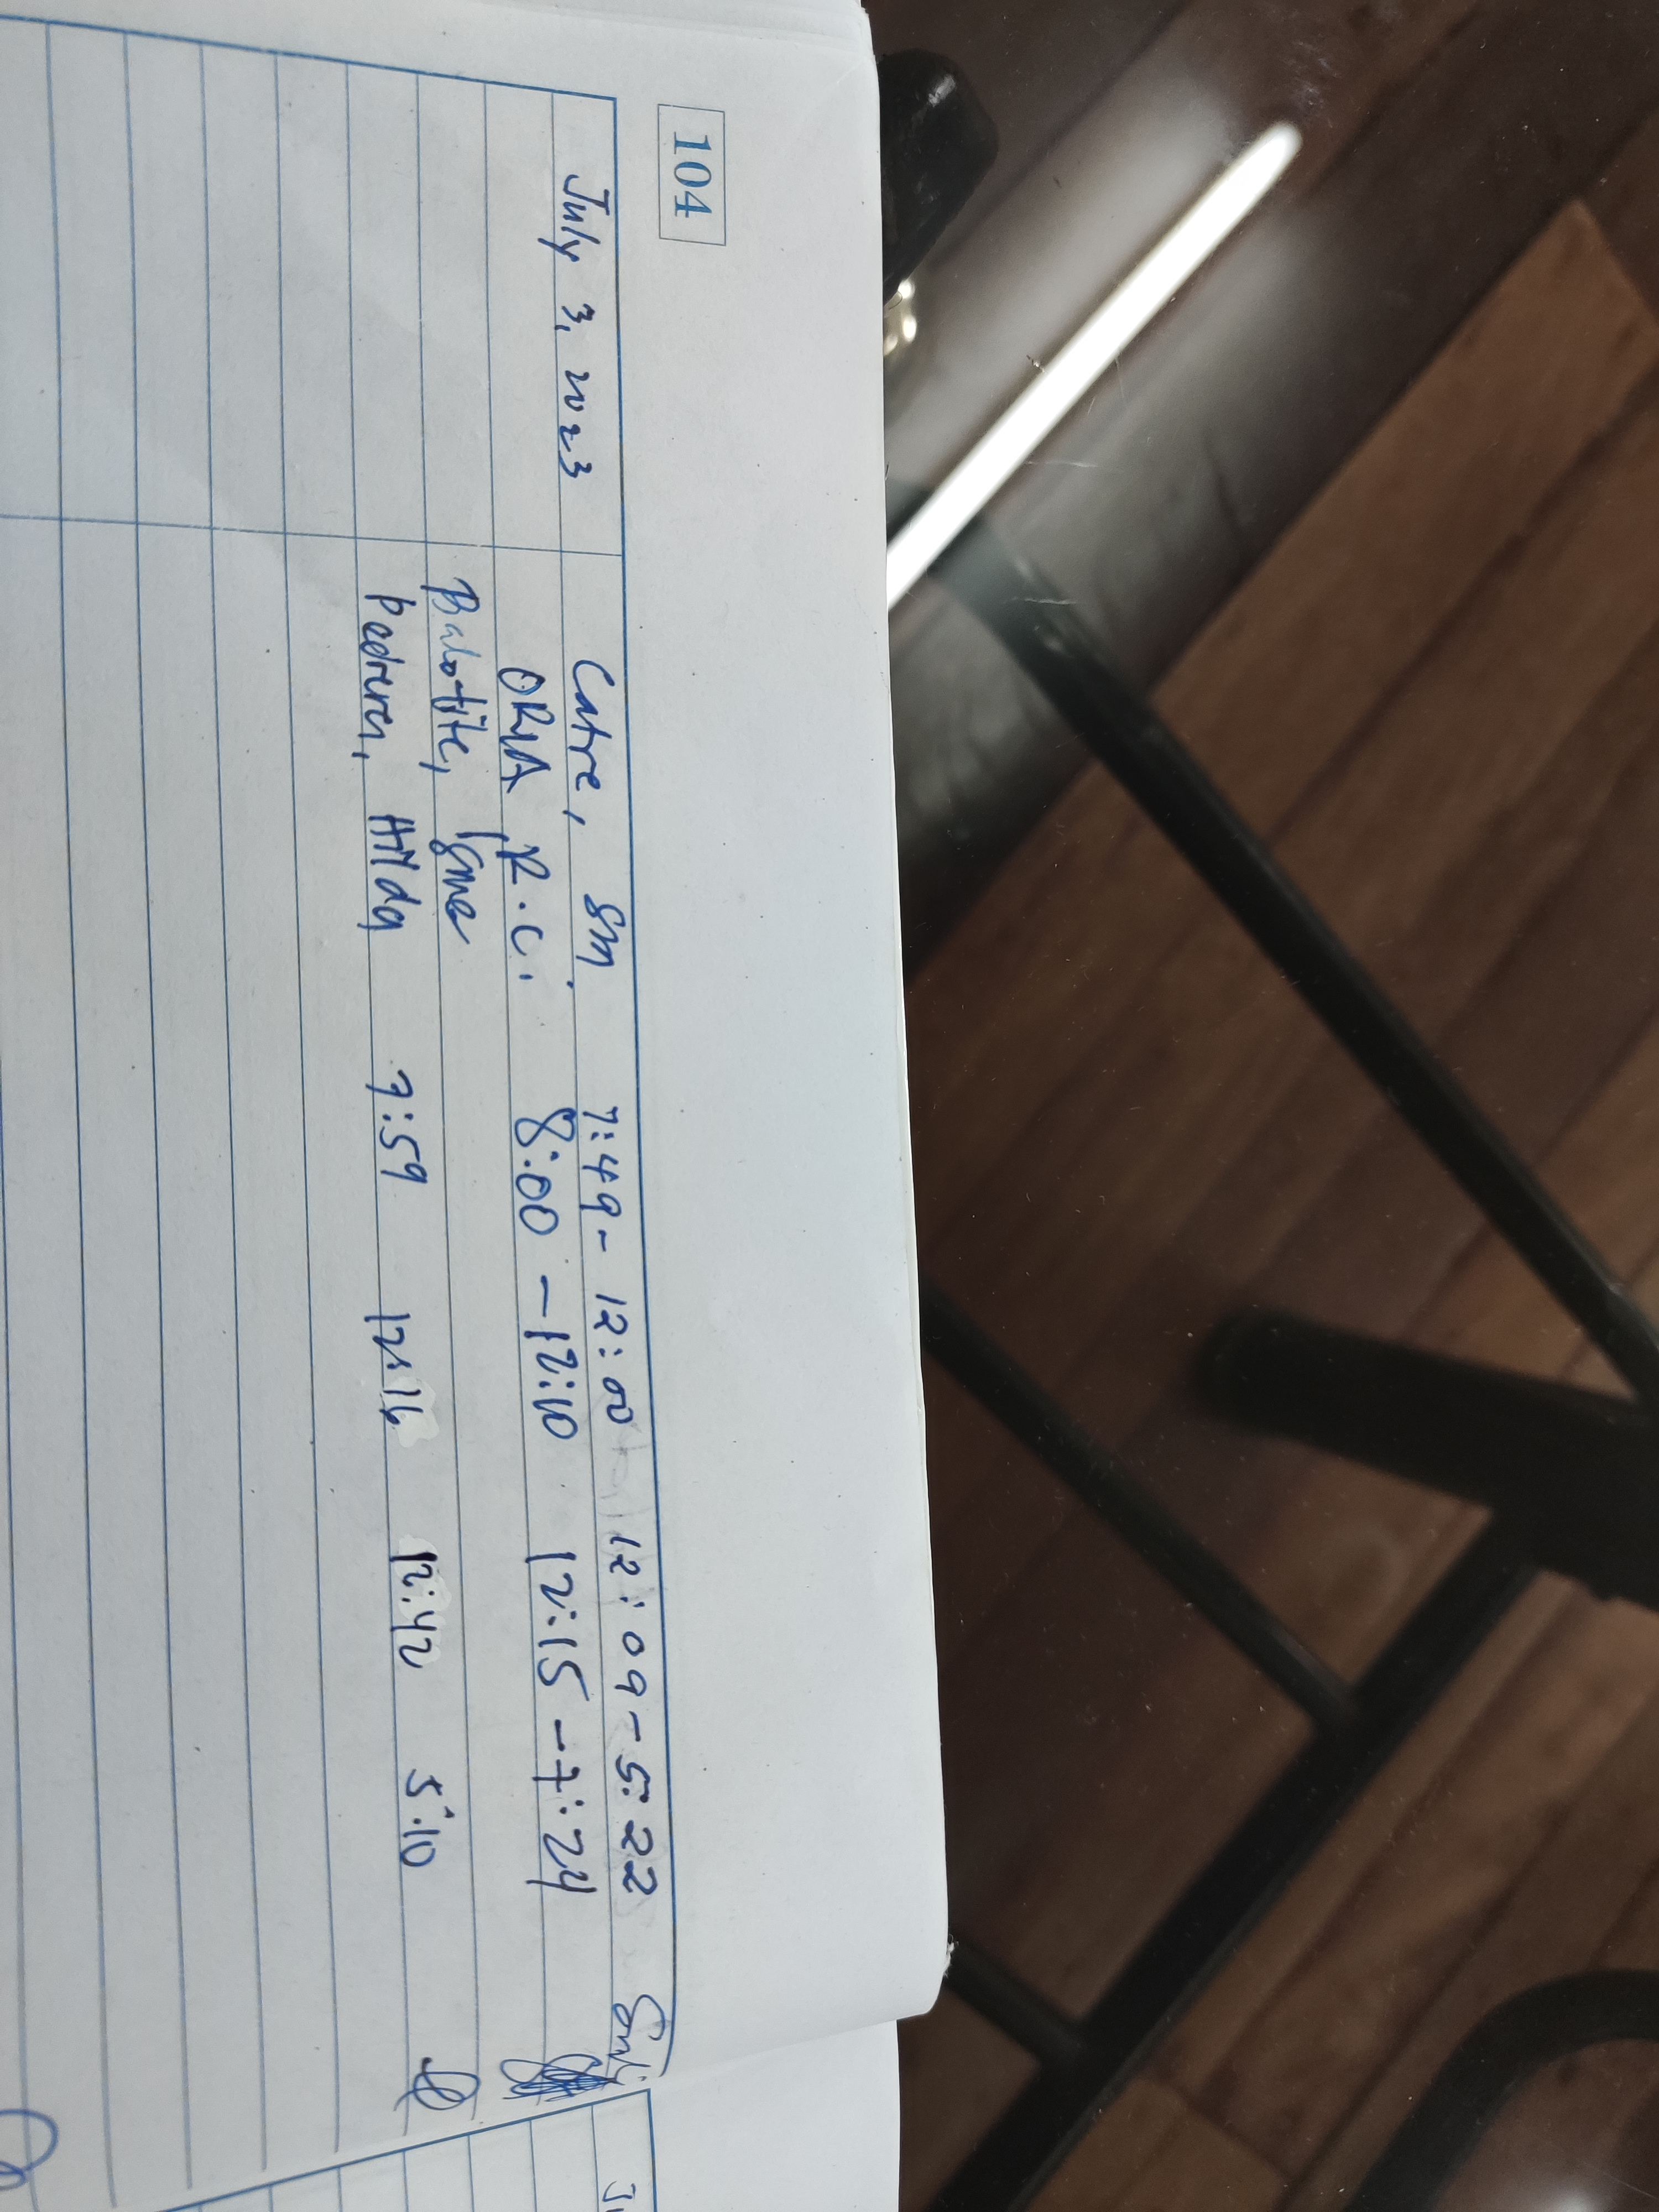 104
July 3, 2023 Catre, Sm 7:49 - 12:00 12:09 - 5:22
ORMA, R.C. 8:00 - 12:10 12:15 - 7:24
Balotite, Igme
Pedreren, Hilda 7:59 12:16 12:42 5:10